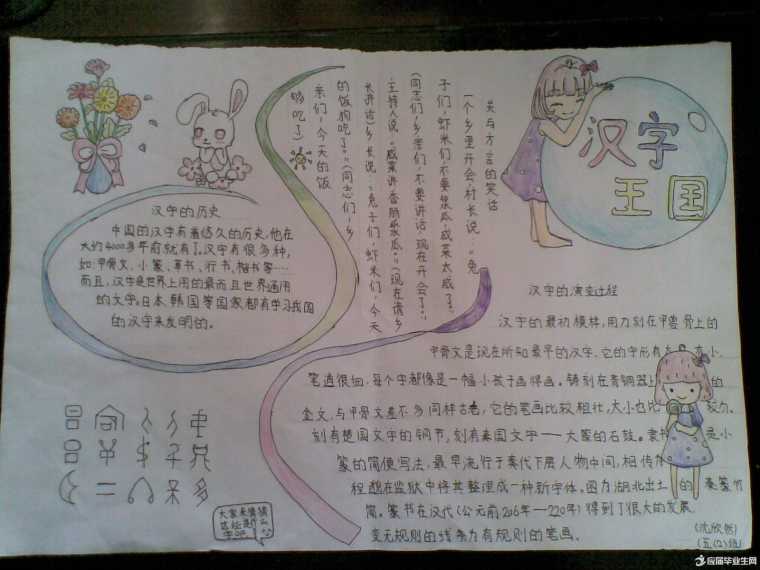 汉字
王国
汉字的历史
中国的汉字有着悠久的历史,他在
大约4000多年前就有了,汉字有很多种,
如:甲骨文、小篆、草书、行书、楷书等……
而且,汉字是世界上用的最而且世界通用
的文字,日本、韩国等国家都有学习我国
的汉字来发明的。
关与方言的笑话
一个乡里开会,村长说:“兔
子们,虾米们,不要浆瓜,咸菜太咸了”。
(同志们,乡亲们,不要讲话,现在开会了”。
主持人说。“咸菜讲香肠浆瓜。”(现在请乡
长讲话)乡长说:“兔子们,虾米们,今天
的饭狗吃了。”(同志们,乡
亲们,今天的饭
够吃了)
汉字的演变过程
汉字的最初模样,用刀刻在甲兽骨上的
甲骨文是现在所知最早的汉字,它的字形有
小
笔道很细,每个字都像是一幅小孩子画得画。铸刻在青铜器上
的
金文,与甲骨文差不多同样古老,它的笔画比较粗壮,大小也比
较匀。
刻有楚国文字的铜节,刻有秦国文字——大篆的石鼓。隶书
是小
篆的简便写法,最早流行于秦代下层人物中间,相传
程邈在监狱中将其整理成一种新字体。图为湖北出土
的
秦篆竹
简。篆书在汉代(公元前206年—220年)得到了很大的发展
变无规则的线条为有规则的笔画。
大家来猜猜
这些是什么
字吧!
(沈欣然)
应届毕业生网